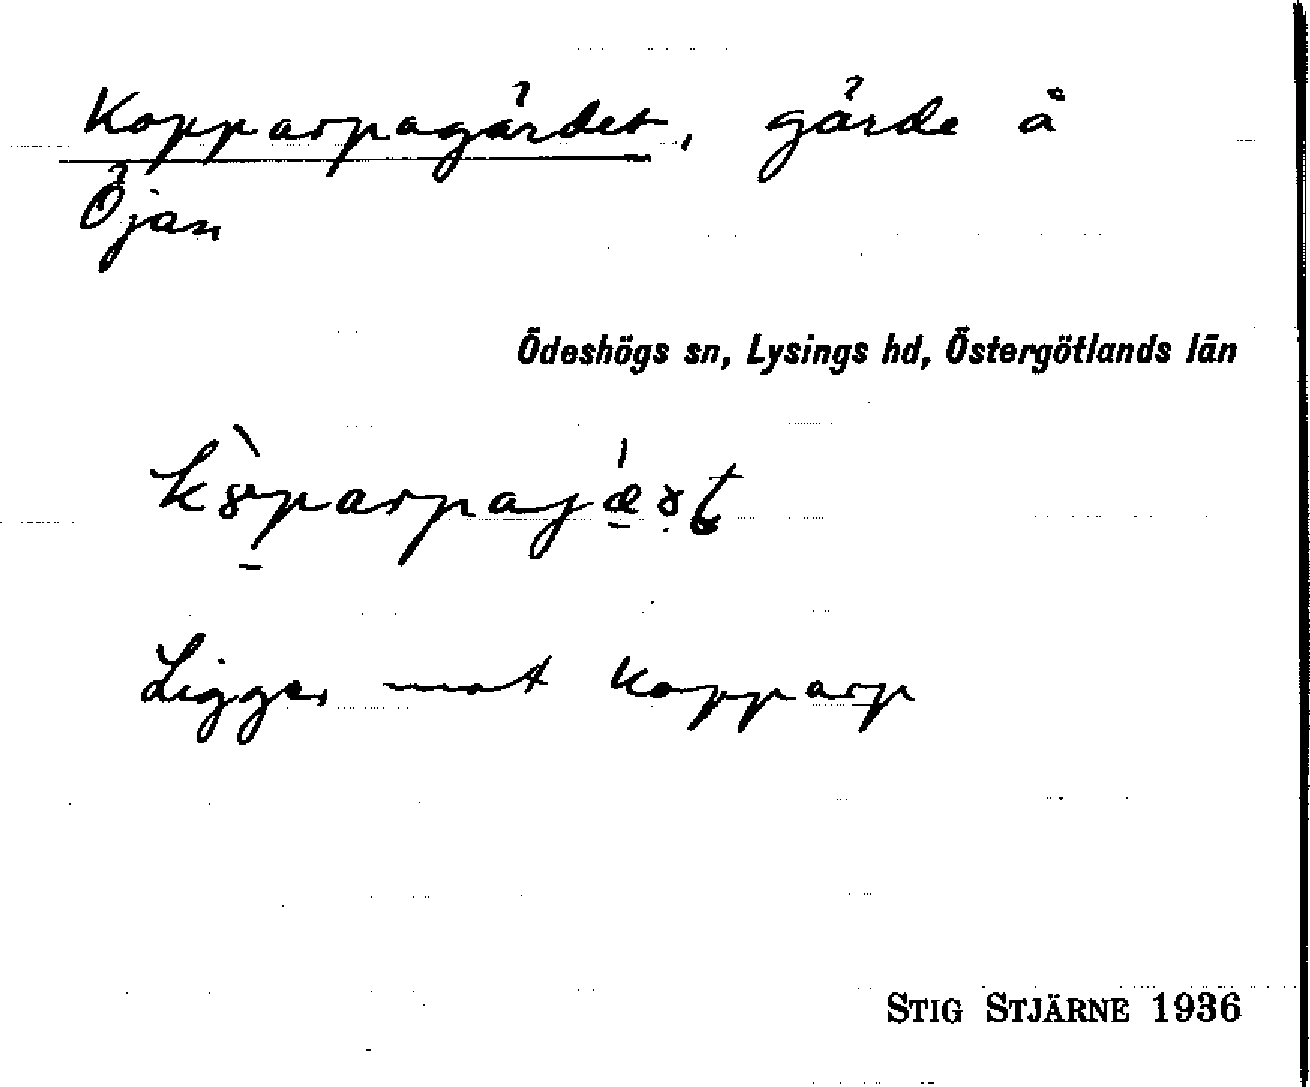 Kopparpagärdet, gärde å
Öjan
Ödeshögs sn, Lysings hd, Östergötlands län
Ligger mot Kopparp
STIG STJÄRNE 1936